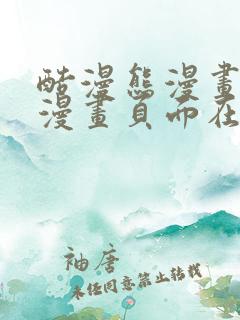 酷漫熊漫畫
漫畫頁而在
袖唐
未经同意禁止转载